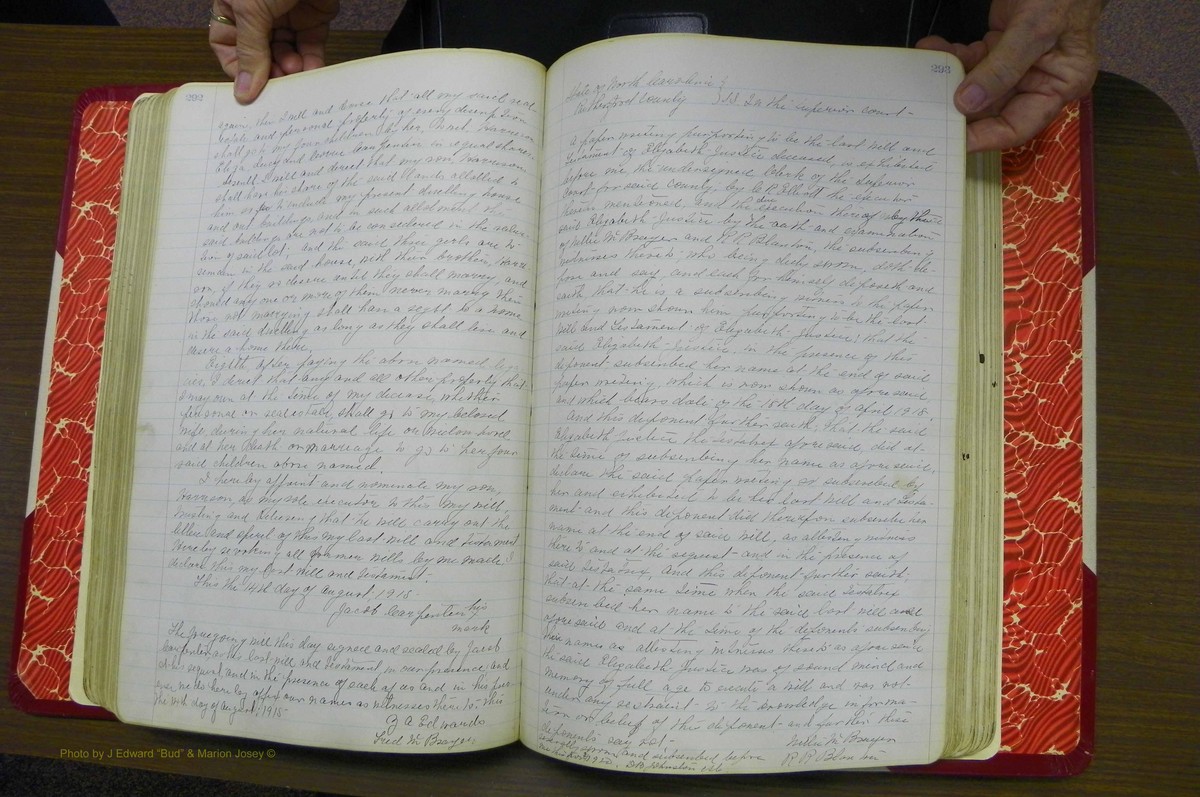 292
again then I will and devise that all my said real
estate and personal property of every description
shall go to my four children
Eliza, and Carpenter in equal shares.
I will and direct that my son, Harrison
shall have his share of the said lands allotted to
him so as to include my present dwelling house
and out buildings and in such allotment the
said buildings are not to be considered in the valua-
tion of said lot; and the said three girls are to
remain in the said house, with their brother, Harri-
son, if they so desire until they shall marry, and
should any one or more of them never marry then
those not marrying shall have a right to a home
in the said dwelling as long as they shall live and
desire a home there.
Eighth after paying the above named lega-
cies, I direct that any and all other property that
I may own at the time of my decease whether
personal or real estate, shall go to my beloved
wife, during her natural life or widowhood
and at her death or marriage to go to her four
said children above named.
I hereby appoint and nominate my son,
Harrison, as my sole executor to this my will,
trusting and believing that he will carry out the
letter and spirit of this my last will and testament
hereby revoking all former wills by me made I
declare this my last will and testament.
This the 14th day of August, 1915
Jacob Carpenter his
mark
The foregoing will this day signed and sealed by Jacob
Carpenter as his last will and testament in our presence, and
at his request and in the presence of each of us and in his pres-
ence, we do hereby affix our names as witnesses thereto this
the day of August, 1915
Z A Edwards
Fred M. Brayer
293
State of North Carolina }
Rutherford County } SS In the superior court-
A paper writing purporting to be the last will and
testament of Elizabeth Justice deceased is exhibited
before me the undersigned clerk of the superior
court for said county, by C R Elliott the executor
therein mentioned and the due execution thereof by the
said Elizabeth Justice by the oath and examination
of Nettie M Brayer and R R Blanton, the subscribing
witnesses thereto who being duly sworn, doth de-
pose and say, and each for himself deposeth and
saith that he is a subscribing witness to the paper
writing now shown him purporting to be the last
will and testament of Elizabeth Justice; that the
said Elizabeth Justice, in the presence of this
deponent subscribed her name at the end of said
paper writing, which is now shown as aforesaid,
and which bears date of the 18th day of April 1918.
And this deponent further saith, that the said
Elizabeth Justice the testatrix aforesaid, did at
the time of subscribing her name as aforesaid,
declare the said paper writing so subscribed by
her and exhibited to be her last will and testa-
ment and this deponent did thereupon subscribe her
name at the end of said will, as attesting witness
thereto and at the request and in the presence of
said testatrix, and this deponent further saith,
that at the same time when the said testatrix
subscribed her name to the said last will and
aforesaid and at the time of the deponents subscribing
their names as attesting witness thereto as aforesaid
the said Elizabeth Justice was of sound mind and
memory of full age to execute a will and was not
under any restraint to the knowledge informa-
tion or belief of this deponent and further these
deponents say not
Nettie M Brayer
R R Blanton
severally sworn and subscribed before
Photo by J Edward "Bud" & Marion Josey ©